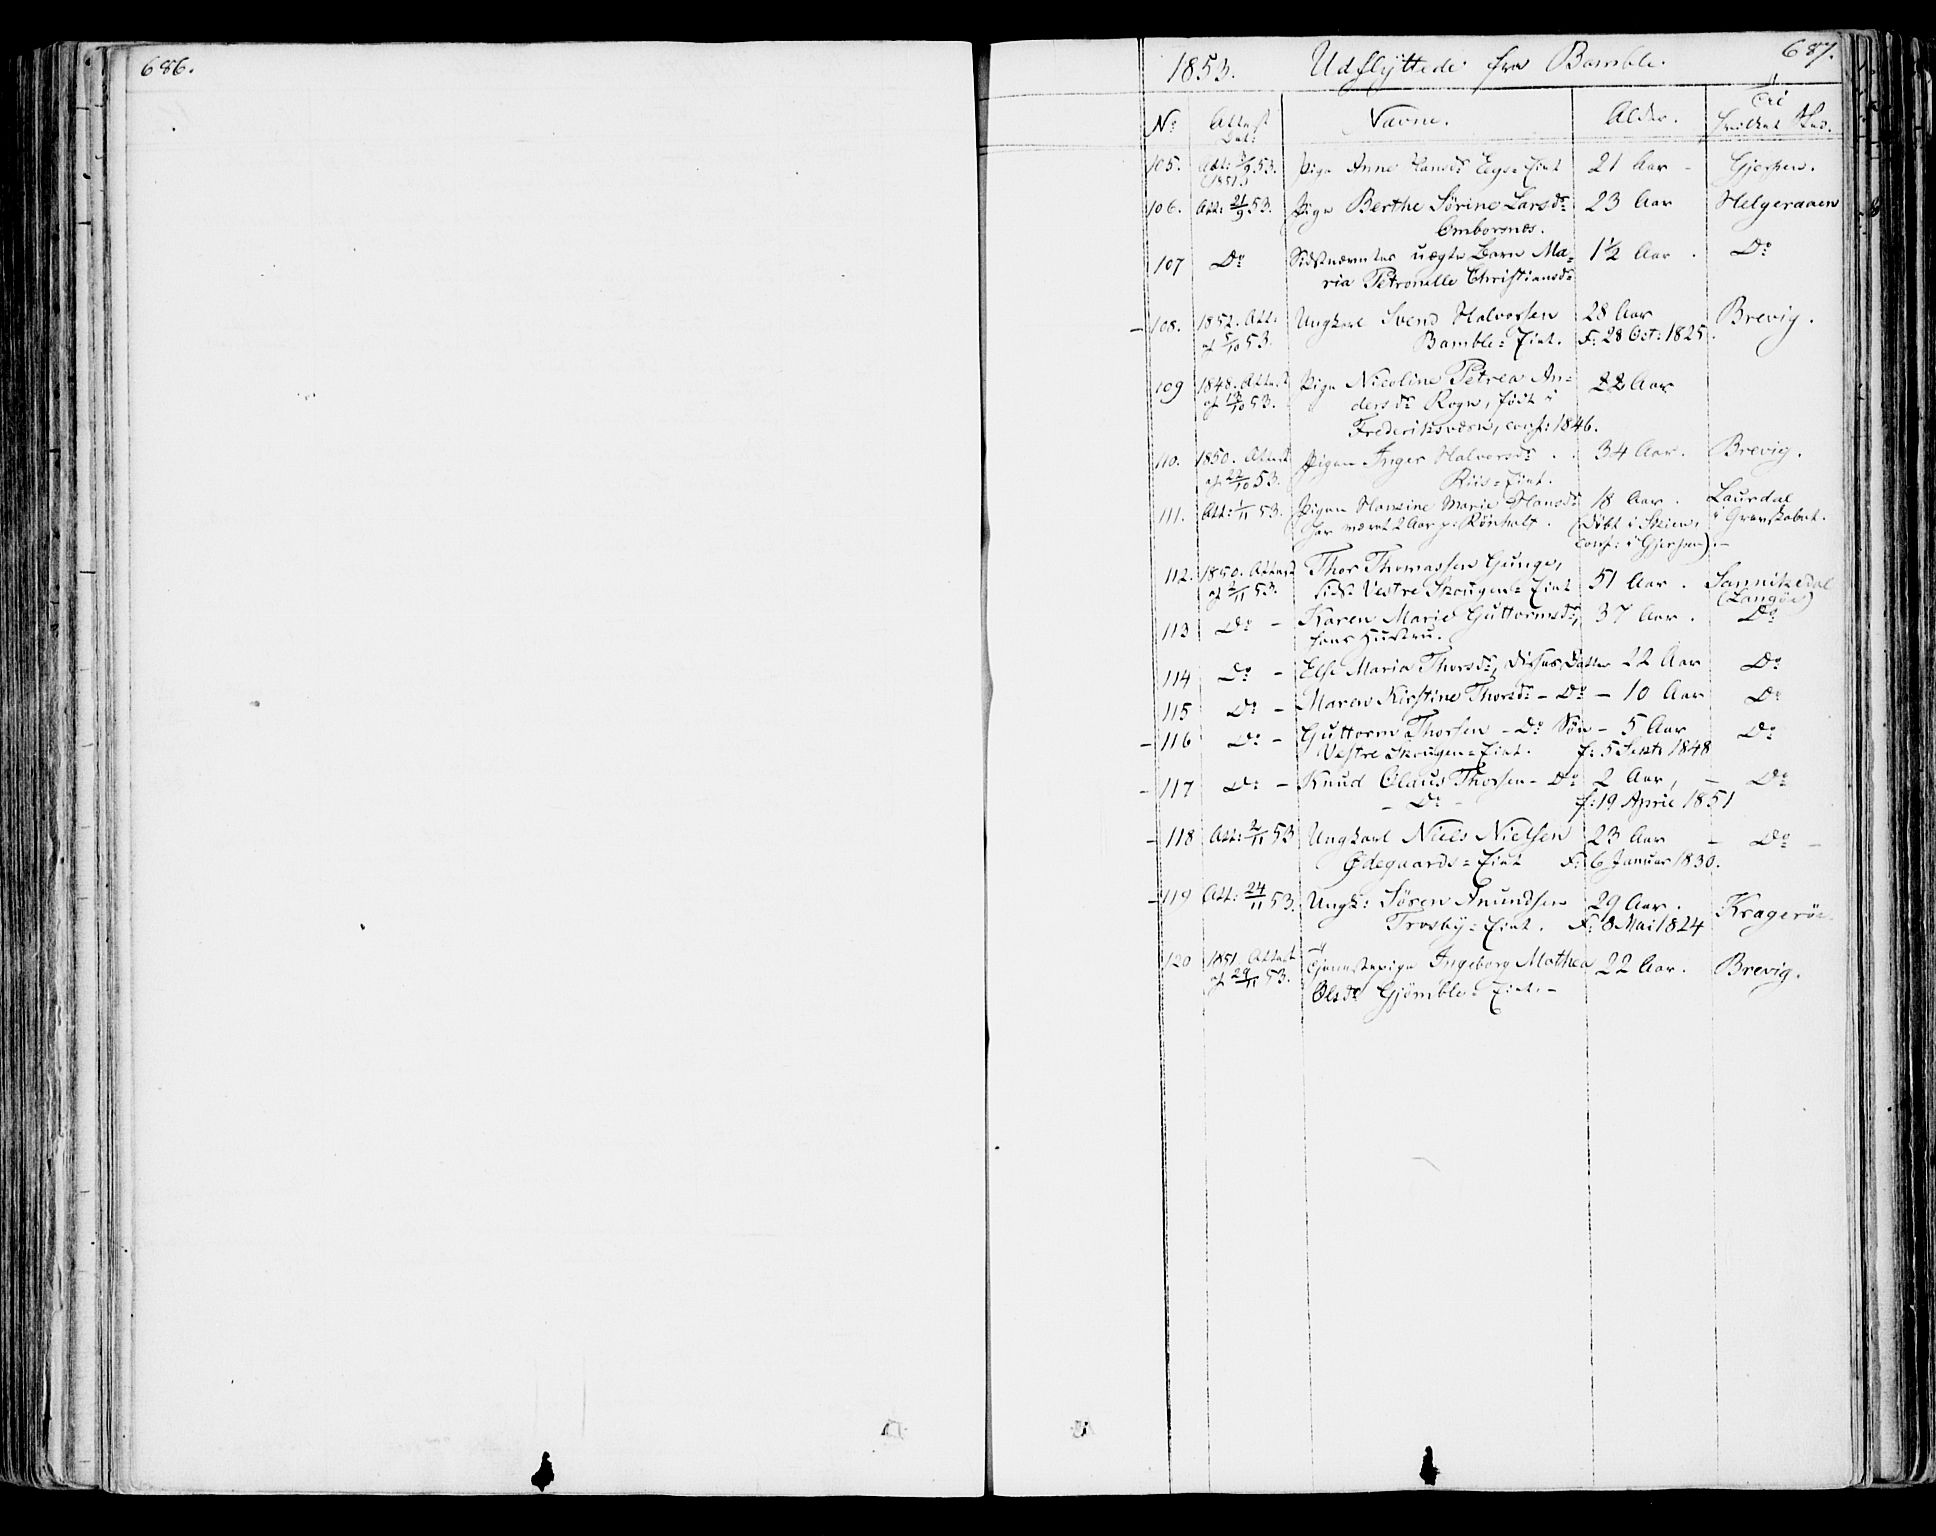 686.
1853. Udflyttede fra Bamble. 687.
No Attest Dat: Navne. Alder. Til hvilket Sted.
105. Att: 53. Pige Anne Hansdr Eegs-Eiet 21 Aar - Gjerpen.
(1851.)
106. Att: 21/9 53. Pige Berthe Sørine Larsdr 23 Aar Helgeraaen
Omborsnæs.
107 Do Sidstnævntes uægte Barn Ma- 1½ Aar . Do
ria Petronelle Christiansdr
108. 1852. Att: Ungkarl Svend Halvorsen 28 Aar Brevig.
af 5/10 53. Bamble-Eiet. F: 28 Oct: 1825.
109 1848. Attest Pige Nicoline Petrea An- 22 Aar
af 53. dersdr Rogn, født i
Frederiksværn, conf: 1846.
110. 1850. Attest Pigen Inger Halvorsdr . . 34 Aar. Brevig.
af 22/10 53. Riis-Eiet.
111. Att: 1/11 53. Pigen Hansine Marie Hansdr 18 Aar. Laurdal
har været 2 Aar p: Rønholt. (døbt i Skien, i Grevskabet.
conf: i Gjerpen).-
112. 1850. Attest Thor Thomassen Gunge,
af 2/11 53. sidst Vestre Skougen-Eiet 51 Aar. Sannikedal
(Langøe)
113 Do - Karen Marie Guttormsdr, 37 Aar. Do
hans Hustru.
114 Do - Else Maria Thorsdr, disses Datter 22 Aar Do
115 Do - Maren Kirstine Thorsdr - Do - 10 Aar Do
- 116 Do - Guttorm Thorsen - Do Søn - 5 Aar Do
Vestre Skougen-Eiet. f: 5 Septr 1848
- 117 Do - Knud Olaus Thorsen - Do 2 Aar, - Do
- Do - f: 19 April 1851
- 118 Att: 2/11 53 Ungkarl Niels Nielsen 23 Aar - Do -
Ødegaards-Eiet F: 6 Januar 1830.
- 119 Att: 24/11 53. Ungk: Søren Anundsen 29 Aar. Kragerøe.
Trosby-Eiet. F: 8 Mai 1824
120 1851 Attest Tjenestepige Ingeborg Mathea 22 Aar. Brevig.
af 29/11 53. Olsdr Gjømble-Eiet.-